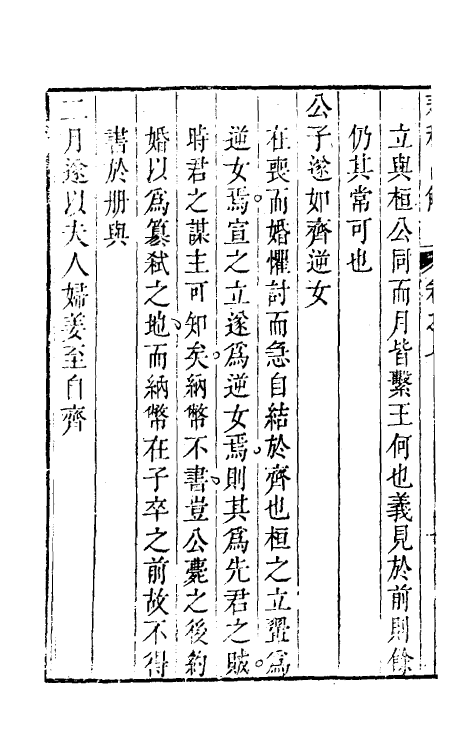 立與桓公同而月皆繫王何也義見於前則餘
仍其常可也
公子遂如齊逆女
在喪而婚懼討而急自結於齊也桓之立翬爲
逆女焉宣之立遂爲逆女焉則其爲先君之賊
時君之謀主可知矣納幣不書豈公薨之後約
婚以爲篡弒之地而納幣在子卒之前故不得
書於册與
二月遂以夫人婦姜至自齊